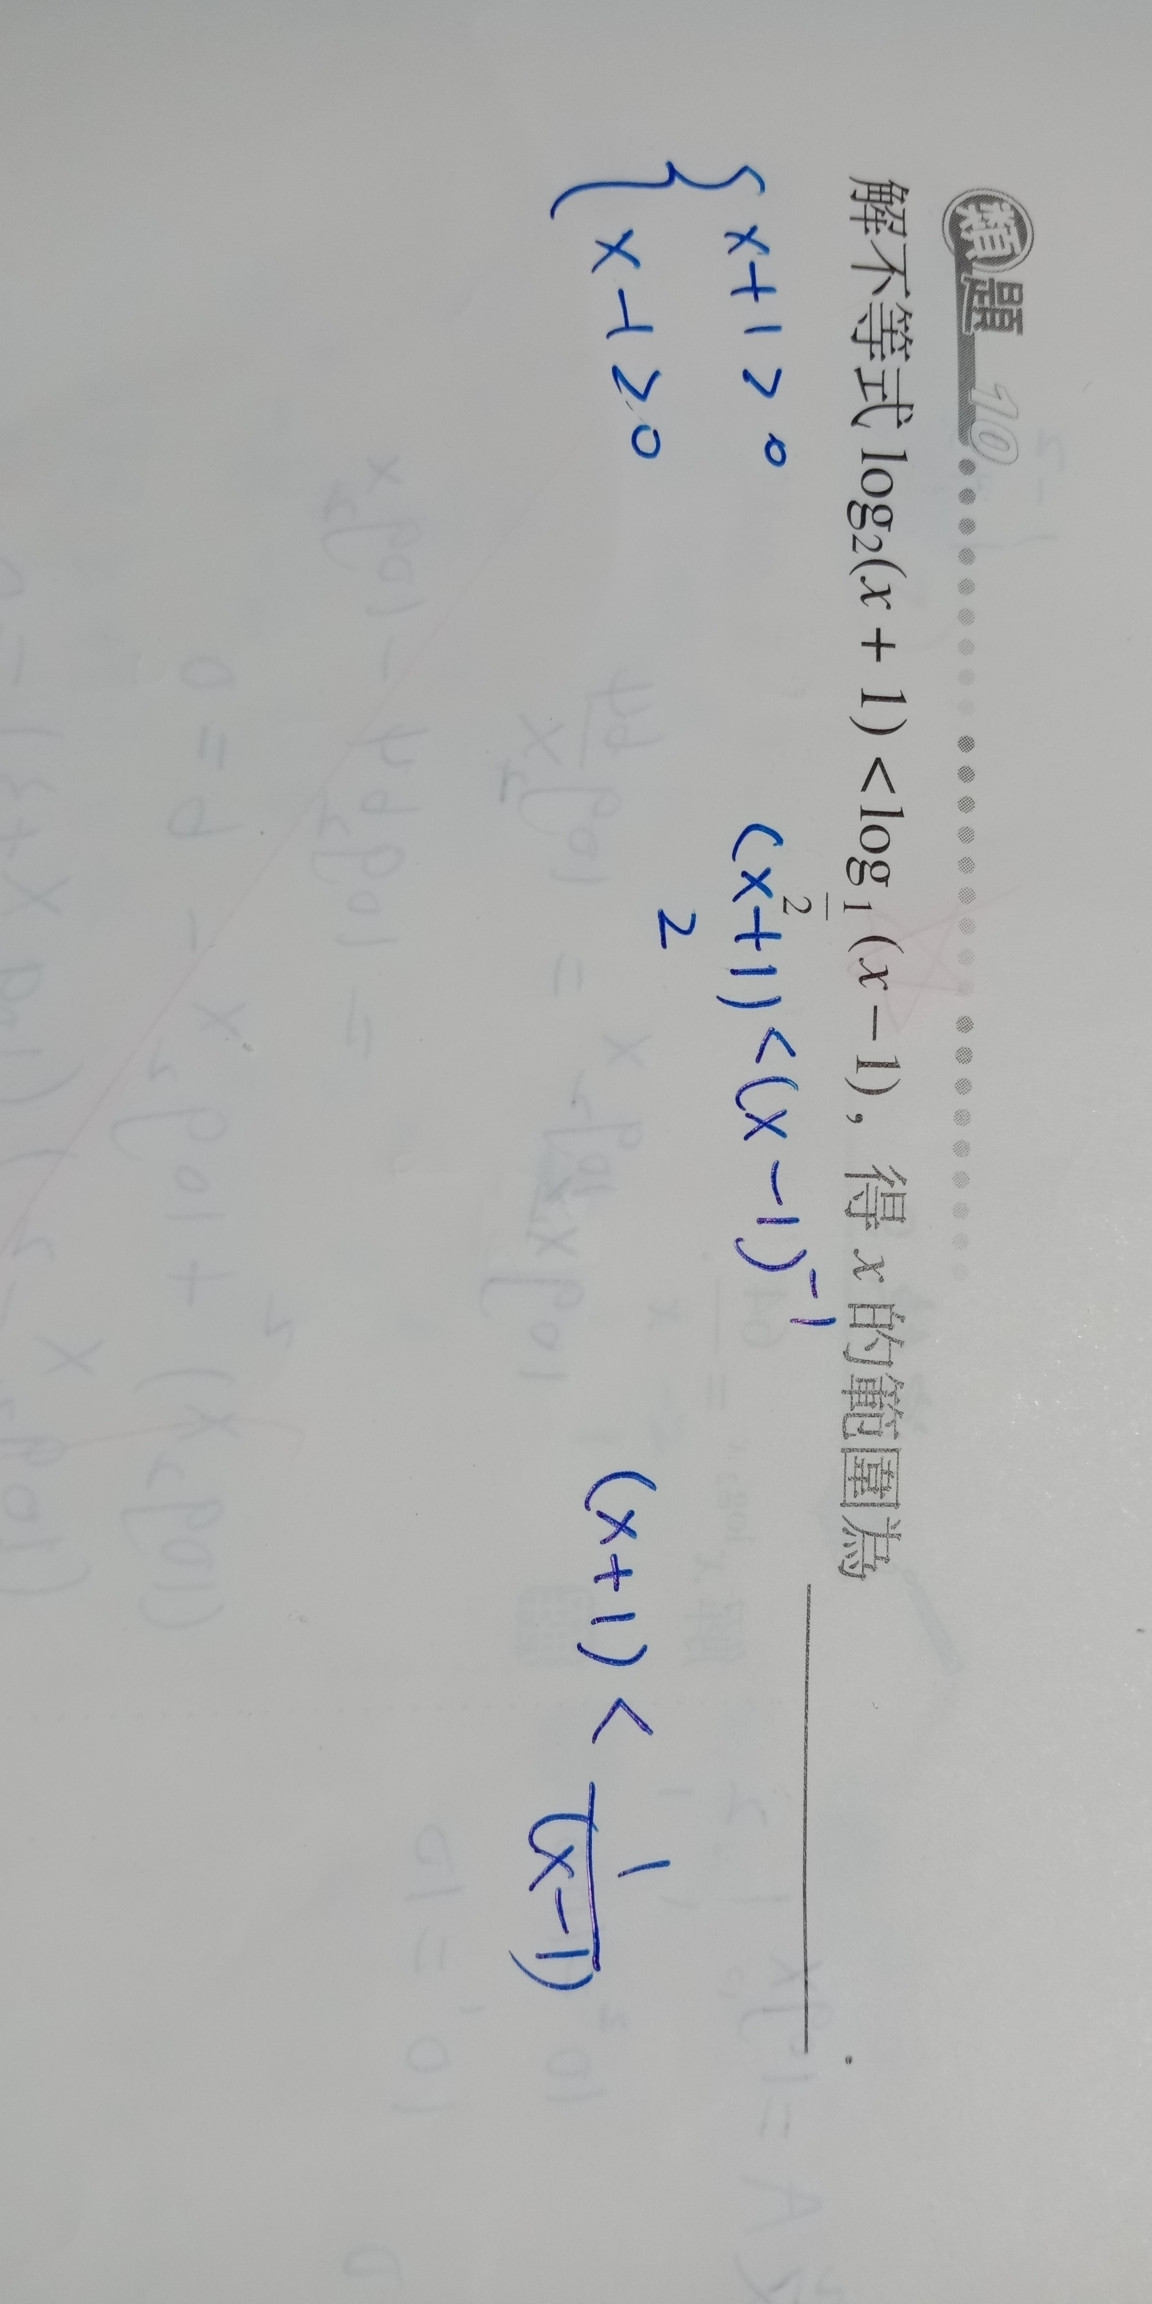 類題 10
解不等式 log₂(x + 1) < log_{1/2}(x − 1)，得 x 的範圍為 ________ .
{ x+1 > 0
x-1 > 0
(x+1) < (x-1)⁻¹
2
(x+1) < 1/(x-1)